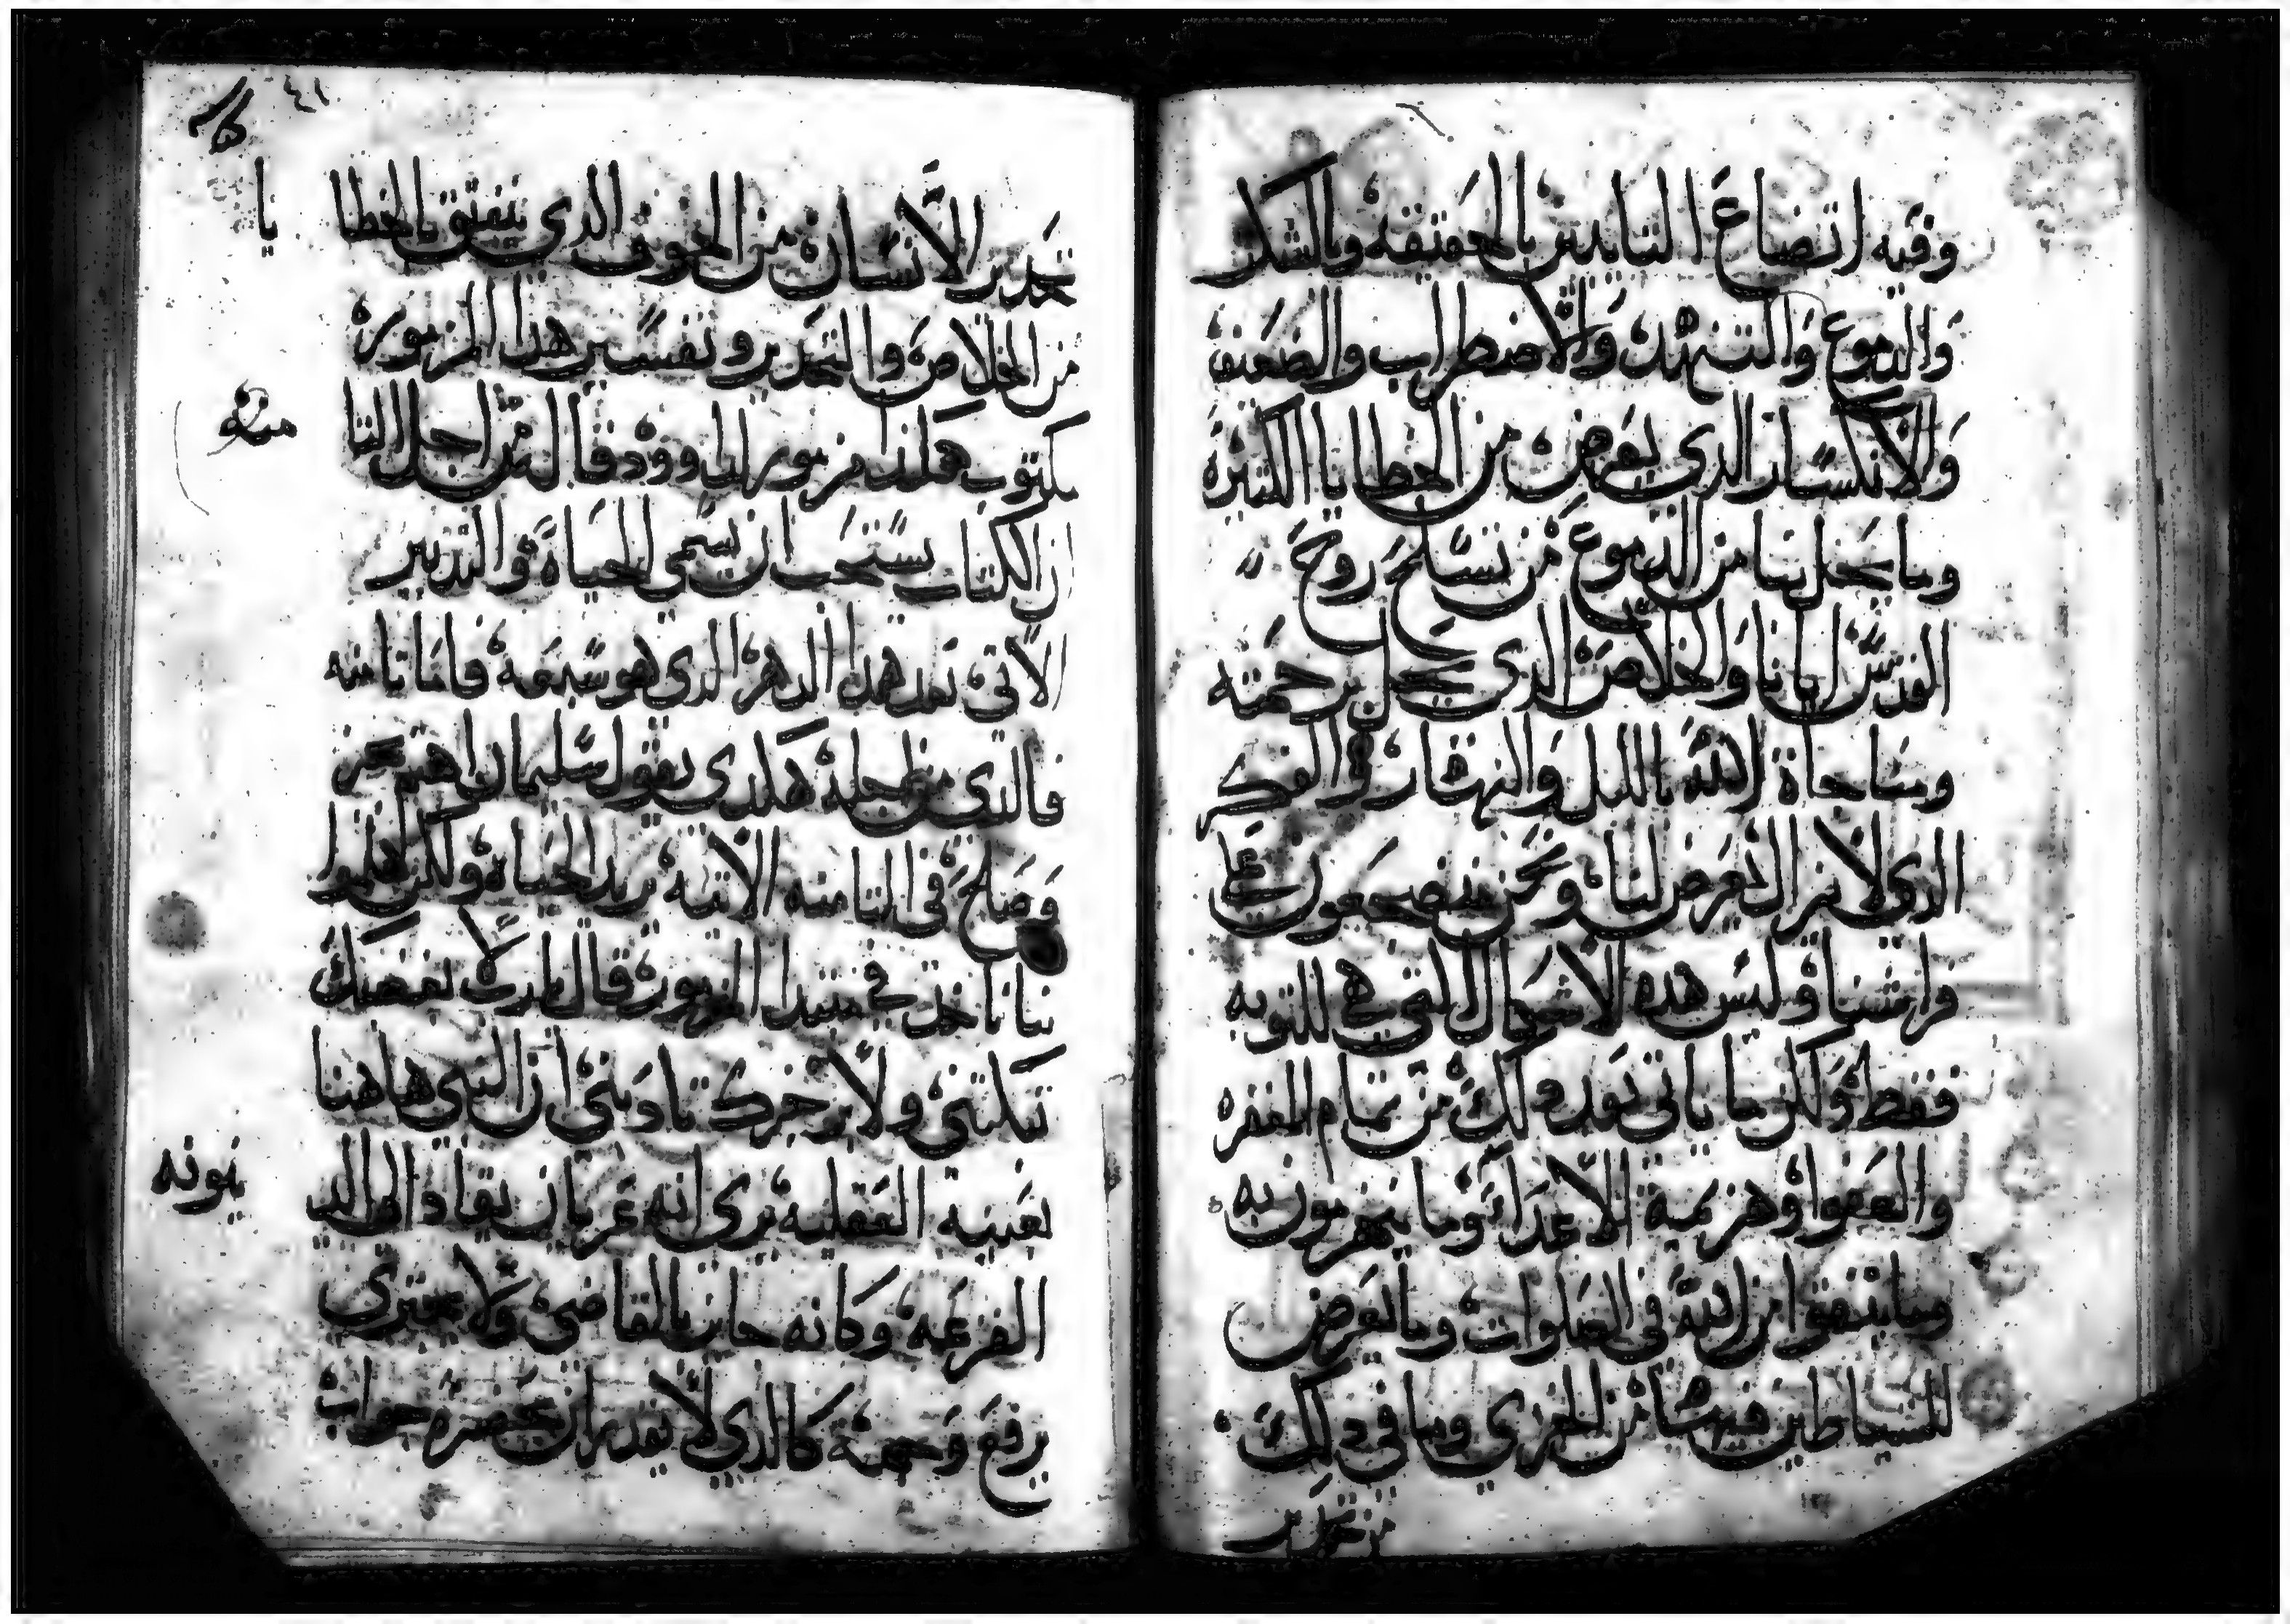 وفيه اتضاع التايبين بالحقيقه وبالشكر
والدموع والتنهد والاضطراب والضعف
والانكسار الدي يعرض من الخطايا الكثيره
وما يحل بنا من الدموع من نسلح روح
القدس ايانا والخلاص الدي يحل برحمته
ومناجاة الله بالليل والنهار في الفكر
الدي لا يزال يعرض لنا ونحن مضجعون على
فراشنا وليس هده الاشكال التي هي للتوبه
فقط ولكن ما ياتي بعد دلك من تمام المغفره
والعفوا وهزيمة الاعدآ وما ينهزمون به
وما يتفق من الله في الصلوات وما يعرض
للشياطين فيها من الخزي وما في دلك
من تحدير
٤١
تحدير الانسان من الخوف الدي يتفق بالخطا يا
من الخلاص والتحدير وتفسير هدا المزمور
مكتوب هكدا مزمور لداوود قال من اجل التا منه
ان الكتاب يستحب ان يسمى الحياة والتدبير
الاتي بعد هدا الدهر الدي هو سبعه فاما تامنه
فالدي من اجله هكدي يقول سليمان اهتم بحزن
وصلح في التامنه الاتيه يريد الحياه ولكن هلموا
بنا ناخد في مبتدا المزمور قال يارب لا بغضبك
تبكتني ولا برجزك تادبني ان النبي هاهنا
بعينيه العقليه يرى انه عريان يقاد الى الد ينونه
الفزعه وكانه حاين بالقاضي ولا يجتري
يرفع وجهه كالدي لا يقدر ان يحضره جواب